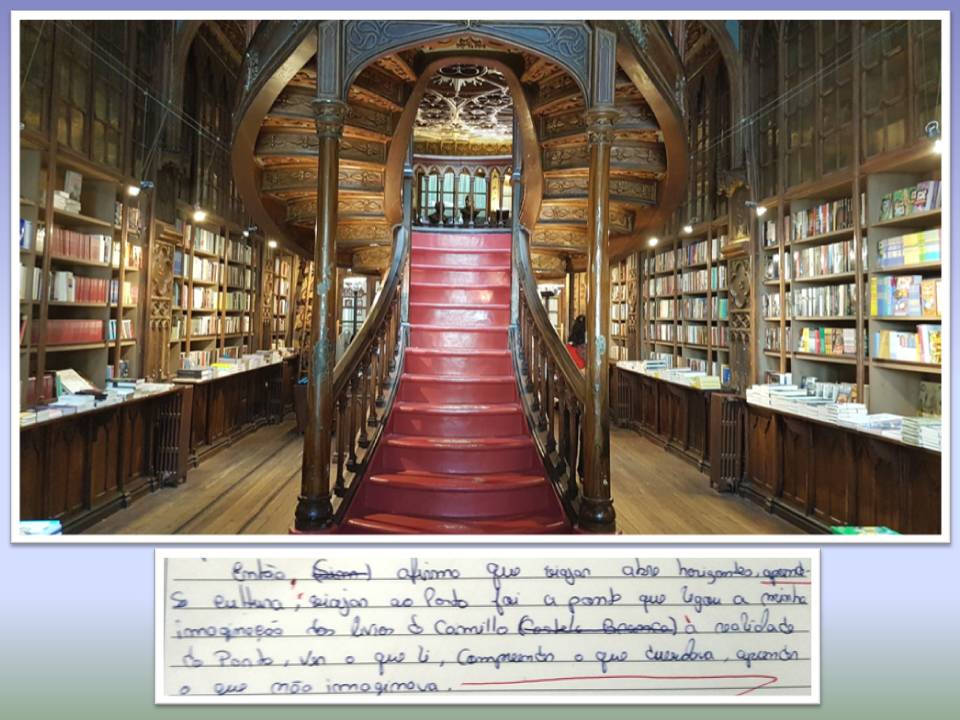 Então, afirmo que viajar abre horizontes, aprend-
se cultura; viajar ao Porto foi a ponte que ligou a minha
imaginação dos livros de Camillo (Castelo Branco) à realidade
do Porto, ver o que li, compreender o que duvidava, aprender
o que não imaginava.